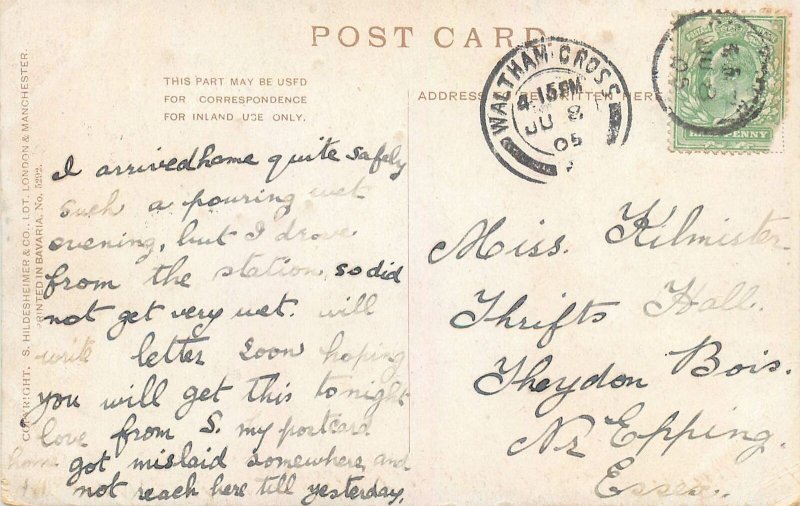 POST CARD
THIS PART MAY BE USED
FOR CORRESPONDENCE
FOR INLAND USE ONLY.
ADDRESS WRITTEN HERE
COPYRIGHT. S. HILDESHEIMER & CO., LDT. LONDON & MANCHESTER.
PRINTED IN BAVARIA. No. 5292.
WALTHAM CROSS
4.15PM
JU 8
05
PENNY
I arrived home quite safely
such a pouring wet
evening, but I drove
from the station so did
not get very wet. will
write letter soon hoping
you will get this tonight
love from S. my postcard
got mislaid somewhere and
not reach here till yesterday.
Miss. Kilmister.
Thrifts Hall.
Theydon Bois.
Nr Epping.
Essex.